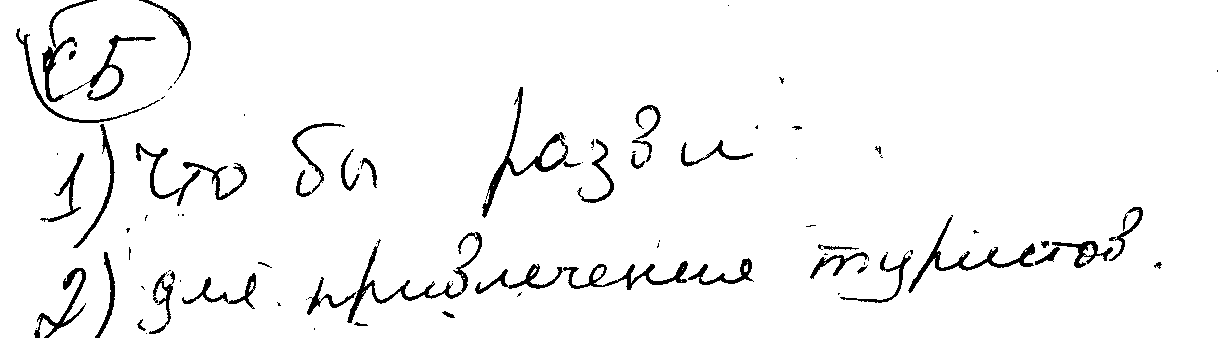 С5
1) Что бы разви
2) для привлечения туристов.